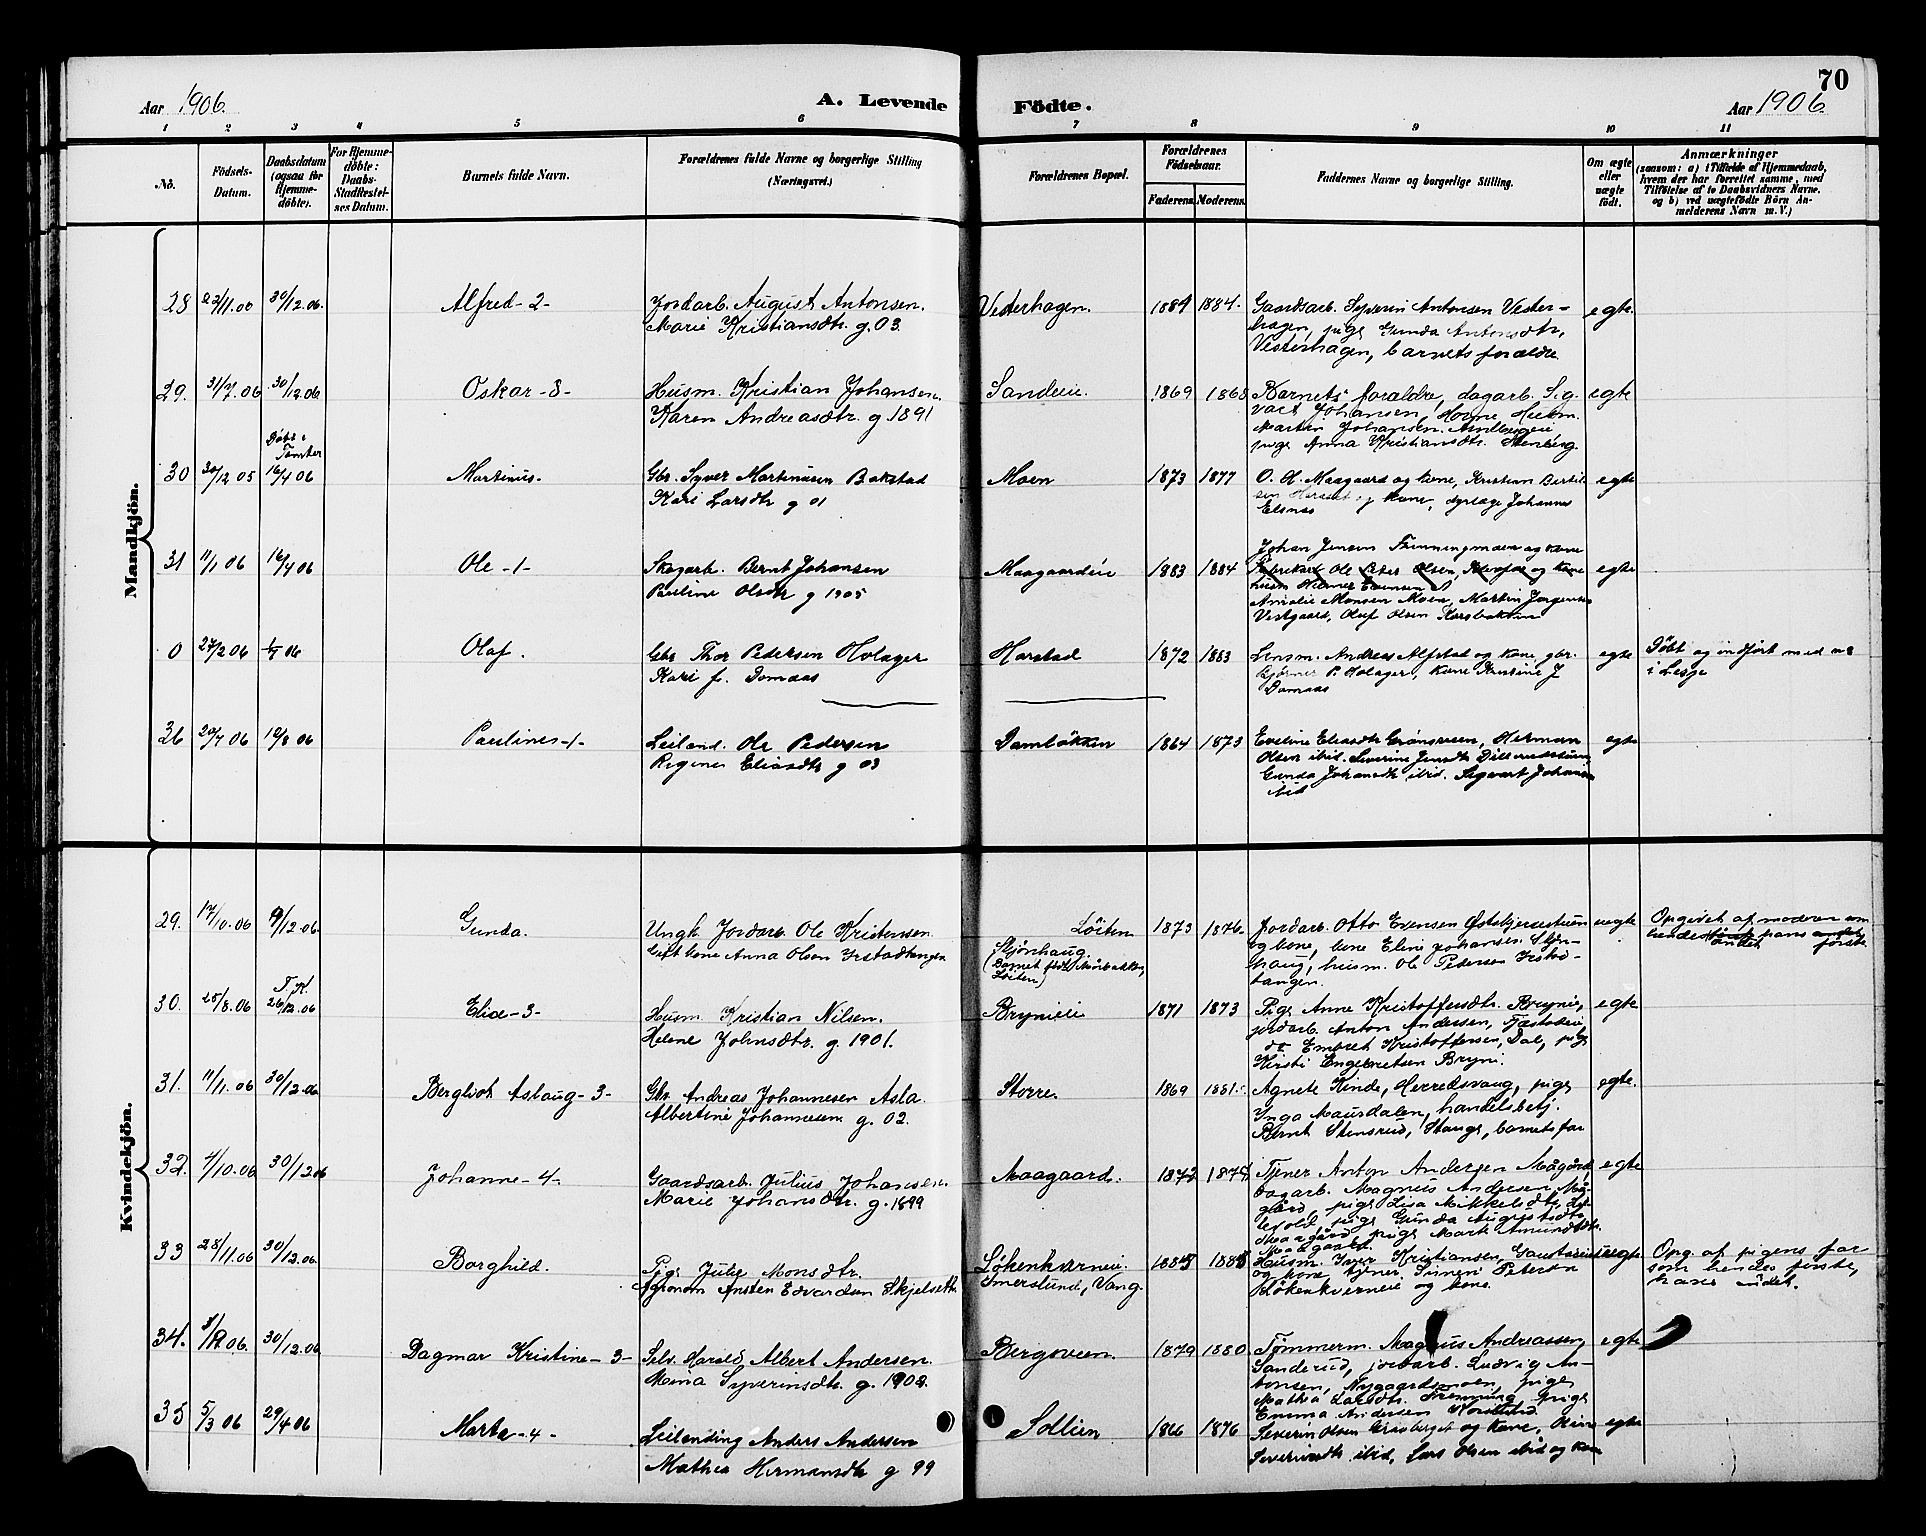 Aar 1906.
A. Levende
Födte.
70
Aar 1906.
1 2 3 4 5 6 7 8 9 10 11
No.
Födsels-Datum.
Daabsdatum (ogsaa for Hjemme-döbte).
For Hjemme-döbte: Daabs-Stadfæstel-ses Datum.
Barnets fulde Navn.
Forældrenes fulde Navne og borgerlige Stilling (Næringsvei.)
Forældrenes Bopæl.
Forældrenes Födselsaar.
Faderens. Moderens.
Faddernes Navne og borgerlige Stilling.
Om ægte eller uægte födt.
Anmærkninger
(saasom: a) i Tilfælde af Hjemmedaab,
hvem der har forrettet samme, med
Tilföielse af to Daabsvidners Navne.
og b) ved uægtefödte Börn An-
melderens Navn m. V.)
Mandkjön.
28 22/11.06 30/12.06. Alfred -2- Jordarb. August Antonsen. Vesterhagen. 1884 1884. Gaardsarb. Syverin Antonsen Vester- egte.
Marie Kristiansdtr. g. 03. hagen, pige Gunda Antonsdtr,
Vesterhagen, barnets forældre
29. 31/7.06 30/12.06 Oskar -3- Husm. Kristian Johansen. Sandeie. 1869 1868 Barnets forældre, dagarb. Sig- egte
Karen Andreasdtr. g 1891 vart Johansen, Hovne Husm.
Martin Johansen.
pige Anna Kristiansdtr. Stenberg.
Döbt i
30 30/12 05 16/4 06 Martinus- Gbr. Syver Martinusen Bakstad Moen 1873 1877 O. H. Maagaard og kone, Kristian Bertil- egte
Kari Larsdtr g 01 sen Harstad og kone, dyrlæge Johannes
Elsnes
31 11/1 06 16/4 06 Ole -1- Skogarb. Bernt Johansen Maagaardeie 1883 1884 Johan Jensen og kone egte
Pauline Olsdtr g 1905 Ole Peter Olsen, og kone
husm Helmer Evensen
Amalie Monsen Moen, Martin Jørgensen
Vestgaard, Oluf Olsen
0 27/2 06 1/7 06 Olaf. Gbr Thor Pedersen Holager Harstad 1872 1883 Lensm. Andreas Alfstad og kone, gbr. egte Döbt og indført med no
Kari f. Domaas Bjørner P. Holager, kone Kristine J i Lesje
Domaas
26 20/7 06 19/8 06 Paulines -1- Leiland. Ole Pedersen Damløkken 1864 1873 Eveline Eliasdtr Grønsveen, Herman egte
Regine Eliasdtr g 03 Olsen ibid. Severine Jensdtr
Gunda Johansdtr ibid. Sigvart Johansen
ibid
Kvindekjön.
29. 17/10.06 9/12.06. Gunda. Ungk. Jordarb. Ole Kristensen. Löiten 1873 1876. Jordarb. Otto Evensen uegte Opgivet af moderen som
Gift kone Anna Olsen Irstadtangen Skjønhaug. (Barnet født Löiten) og kone, kone Eline Johansen Skjøn- hendes hans andet første
haug, husm. Ole Pedersen Irstad-
tangen.
T. K.
30. 25/8.06 26/12.06 Elise -3- Husm. Kristian Nilsen. Brynieie 1871 1873 Pige Anne Kristoffersdtr. Brynie, egte
Helene Johnsdtr. g. 1901. jordarb. Anton Andersen,
do Embret Kristoffersen, Dal, pige
Kirsti Engebretsen Bryni.
31. 11/11.06 30/12.06 Bergliot Aslaug -3- Gbr. Andreas Johannesen Asla. Storre. 1869 1881. Agnete Kinde, Herredsvang, pige egte.
Albertine Johannesen g. 02. Inga Maursdalen, handelsbetj.
Bernt Stensrud, Stange, barnets far
32. 4/10.06 30/12.06 Johanne -4- Gaardsarb. Julius Johansen. Maagaard. 1872 1877. Tjener Anton Andersen Mågård egte
Marie Johansdtr. g. 1899 dagarb. Magnus Andersen, Må-
gård, pige Lisa Mikkelsdtr,
pige Gunda Augustsdtr
Maagård, pige Marte Amundsdtr.
Maagaard.
33 28/11.06 30/12.06. Borghild. Pige Julie Monsdtr. Løkenkverneie. 1885 1885 Husm. Iver Kristiansen uegte Opg. af pigens far
Agronom Ansten Edvardsen Skjelseth Imerslund, Vang. og kone, tjener Simen Petersen som hendes første,
Løkenkverneie og kone. hans andet.
34. 30/12.06 Dagmar Kristine -3- Selv. Harald Albert Andersen. Bergsveen. 1879 1880. Tømmerm. Magnus Andreassen, egte
Mina Syverinsdtr. g. 1902. Sanderud, jordarb. Ludvig An-
tonsen, Nygaardsmoen, pige
Mathea Larsdtr. pige
Emma Andersen
35 5/3 06 29/4 06 Marta -4- Leilending Anders Andersen Sollien 1866 1876 Severin Olsen Grisberget og kone, egte
Mathea Hermansdtr g 99 Severinsdtr ibid, Lars Olsen ibid og kone